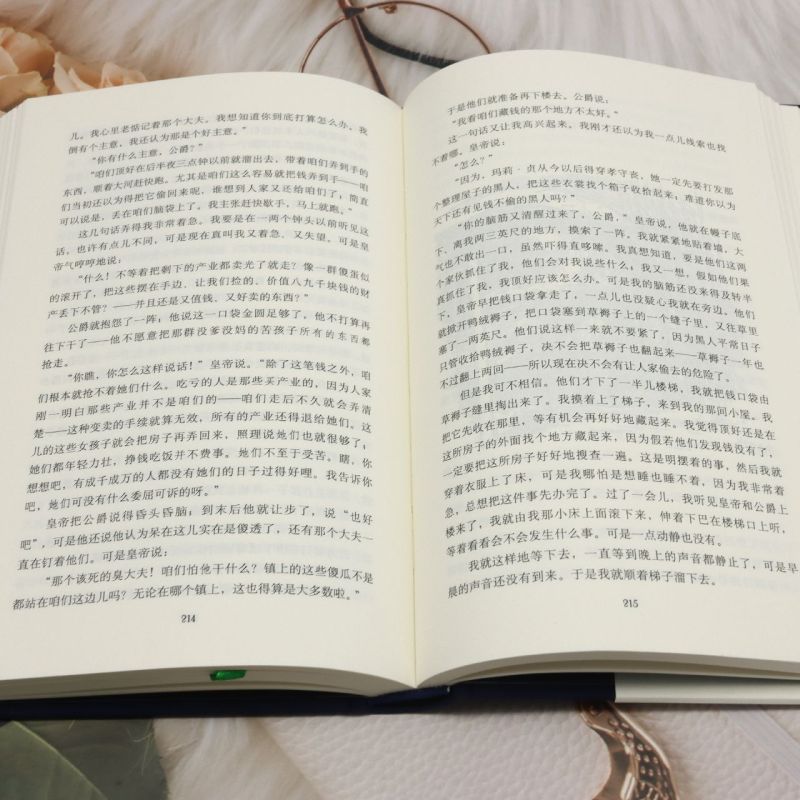 儿。我心里老惦记着那个大夫。我想知道你到底打算怎么办。我
倒有个主意，我还认为那是个好主意。”
“你有什么主意，公爵？”
“咱们顶好在后半夜三点钟以前就溜出去，带着咱们弄到手的
东西，顺着大河赶快跑。尤其是咱们这么容易就把钱弄到手——咱
们当初还以为得把它偷回来呢，谁想到人家又还给咱们了；简直
可以说是，丢在咱们脑袋上了。我主张赶快歇手，马上就跑。”
这几句话弄得我非常着急。我要是在一两个钟头以前听见这
话，也许有点儿不同，可是现在真叫我又着急、又失望。可是皇
帝气哼哼地说：
“什么！不等着把剩下的产业都卖光了就走？像一群傻蛋似
的滚开了，把这些摆在手边、让我们捡的、价值八九千块钱的财
产丢下不管？——并且还是又值钱、又好卖的东西？”
公爵就抱怨了一阵；他说这一口袋金圆足够了，他不打算再
往下干了——他不愿意把那群没爹没妈的苦孩子所有的东西都
抢走。
“你瞧，你怎么这样说话！”皇帝说。“除了这笔钱之外，咱
们根本就抢不着她们什么。吃亏的人是那些买产业的，因为人家
刚一明白那些产业并不是咱们的——咱们走后不久就会弄清
楚——这种变卖的手续就算无效，所有的产业还得退给她们。这
儿的这些女孩子就会把房子再弄回来，照理说她们也就很够了；
她们都年轻力壮，挣钱吃饭并不费事。她们不至于受苦。瞎，你
想想吧，有成千成万的人都没有她们的日子过得好哩。我告诉你
吧，她们可没有什么委屈可诉的呀。”
皇帝把公爵说得昏头昏脑；到末后他就让步了，说“也好
吧”，可是他还说他认为呆在这儿实在是傻透了，还有那个大夫一
直在钉着他们。可是皇帝说：
“那个该死的臭大夫！咱们怕他干什么？镇上的这些傻瓜不是
都站在咱们这边儿吗？无论在哪个镇上，这也得算是大多数啦。”
214
于是他们就准备再下楼去。公爵说：
“我看咱们藏钱的那个地方不太好。”
这一句话又让我高兴起来。我刚才还以为我一点儿线索也找
不着哪。皇帝说：
“怎么？”
“因为，玛莉·贞从今以后得穿孝守丧，她一定先要打发那
个整理屋子的黑人，把这些衣裳找个箱子收拾起来；难道你以为
天下还有见钱不偷的黑人吗？”
“你的脑筋又清醒过来了，公爵，”皇帝说，他就在幔子底
下、离我两三英尺的地方，摸索了一阵。我就紧紧地贴着墙，大
气也不敢出一口，虽然吓得直哆嗦。我真想知道，要是他们这两
个家伙抓住了我，他们会对我说些什么；我又一想，假如他们果
真抓住了我，我顶好应该怎么办。可是我的脑筋还没来得及转半
下，皇帝早把钱口袋拿走了，一点儿也没疑心我就在旁边。他们
就掀开鸭绒褥子，把口袋塞到草褥子上的一个缝子里，又往草里
塞了一两英尺。他们说这样一来就不要紧了，因为黑人平常日子
只管收拾鸭绒褥子，决不会把草褥子也翻起来——草褥子一年也
不过翻上两回——所以现在决不会有让人家偷去的危险了。
但是我可不相信。他们才下了一半儿楼梯，我就把钱口袋由
草褥子缝里掏出来了。我摸着上了梯子，来到我的那间小屋。我
把它先收在那里，等有机会再好好地藏起来。我觉得顶好还是在
这所房子的外面找个地方藏起来，因为假若他们发现钱没有了，
一定要把这所房子好好地搜查一遍。这是明摆着的事，然后我就
穿着衣服上了床，可是我哪怕是想睡也睡不着，因为我非常着
急，总想把这件事先办完了。过了一会儿，我听见皇帝和公爵上
楼来了，我就由我那小床上面滚下来，伸着下巴在楼梯口上听，
等着看看会不会发生什么事。可是一点动静也没有。
我就这样地等下去，一直等到晚上的声音都静止了，可是早
晨的声音还没有到来。于是我就顺着梯子溜下去。
215